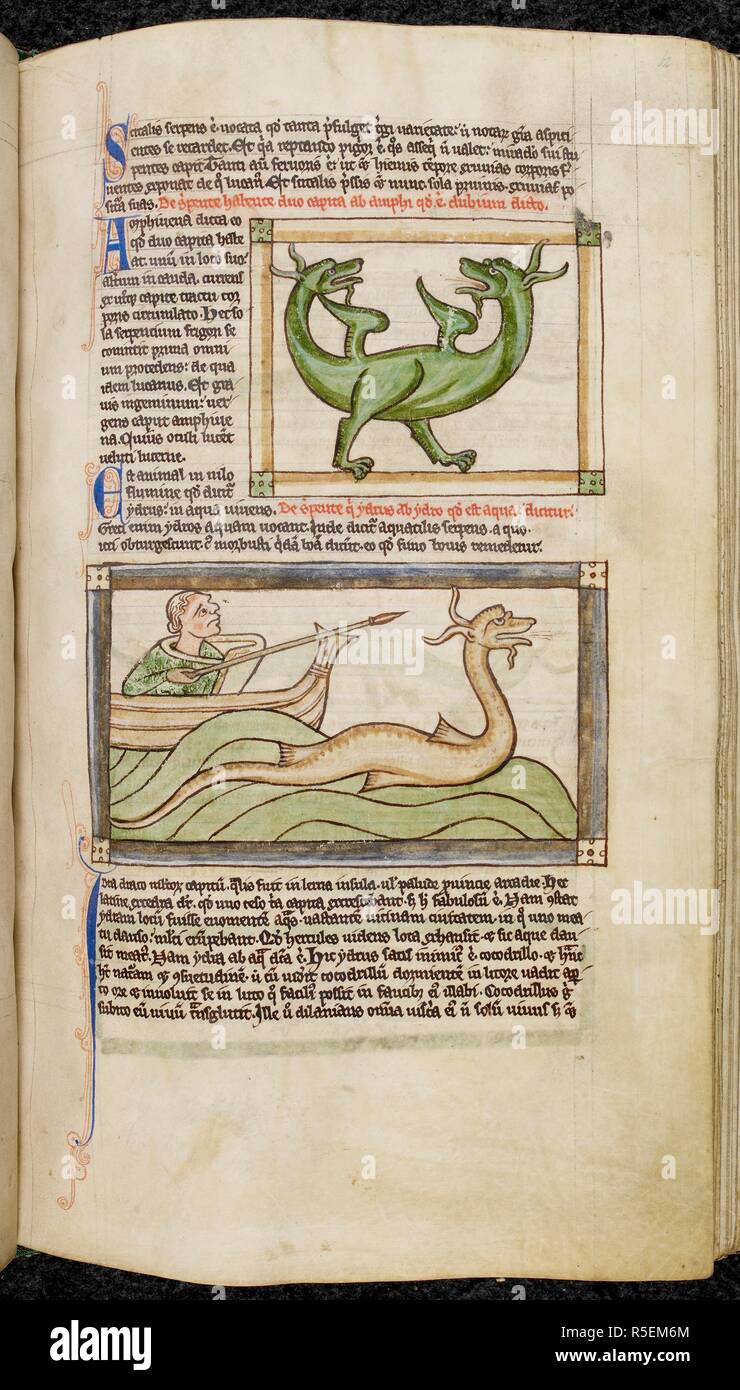 Scitalis serpens ē. uocata qđ tanta p̄fulget tḡi uarietate: ū notaꝝ gīa aspici
entes se retardet. Et qa reptando pigior ē. qs asseq̄ ū ualet: miraclo sui stu
pentes capit. Tanti aū feruoris ē: ut & hiemis tēpore exuuias corporis f̄
uentes exponat de q̄ lucan. Et scitalis sparsis & nunc sola pruinis. exuuias po
sita suas. De s̄pente habente duo capita ab amphi qđ ē. dubium dicto.
Anphiuena dicta eo
qđ duo capita habe
at. unū in loco suo:
altum in cauda. currens
ex utroq; capite tractu cor
poris circulato. Hec so
la serpentium frigori se
comittit prima omni
um procedens: de qua
idem lucanus. Et gra
uis ingeminum: uer
gens caput amphiue
na. Cuius oculi lucēt
ueluti lucerne.
Est animal in nilo
flumine qđ dicit
ydrus: in aqua uiuens. De s̄pente q̄ ydrus ab ydro qđ est aqua. dicitur.
Greci enim ydros aquam uocant. Inde dicit aquatilis serpens. a quo
icti obturgescunt. & morbu q̄dā boā dicūt. eo qđ fimo bouis remedetur.
Idra draco multoꝝ capitū. qualis fuit in lerna insula. ul' palude puincie arcadie. Hec
latine excedra dr̄. qđ uno ceso tria capita excrescebant. s; h' fabulosū ē. Nam ɔstat
ydram locū fuisse euomentē aqs. uastante uicinam ciuitatem. in q̄ uno mea
tu clauso: multi erumpebant. Qđ hercules uidens loca exhausit. & sic aque clau
sit meat. Nam ydra ab aqua dcā ē. Hic ydrus satis inimic ē cocodrillo. & hanc
ht naturam & ɔsuetudinē. ū cū uiderit cocodrillū dormientē in litore uadit aper
to ore & inuoluit se in luto q̄ facili possit in faucib; ei illabi. Cocodrillus g̅
subito eū uiuū tnsglutit. Ille ū dilanians omnia uiscera ei. ū solū uiuus s; &
alamy
Image ID: R5EM6M
www.alamy.com